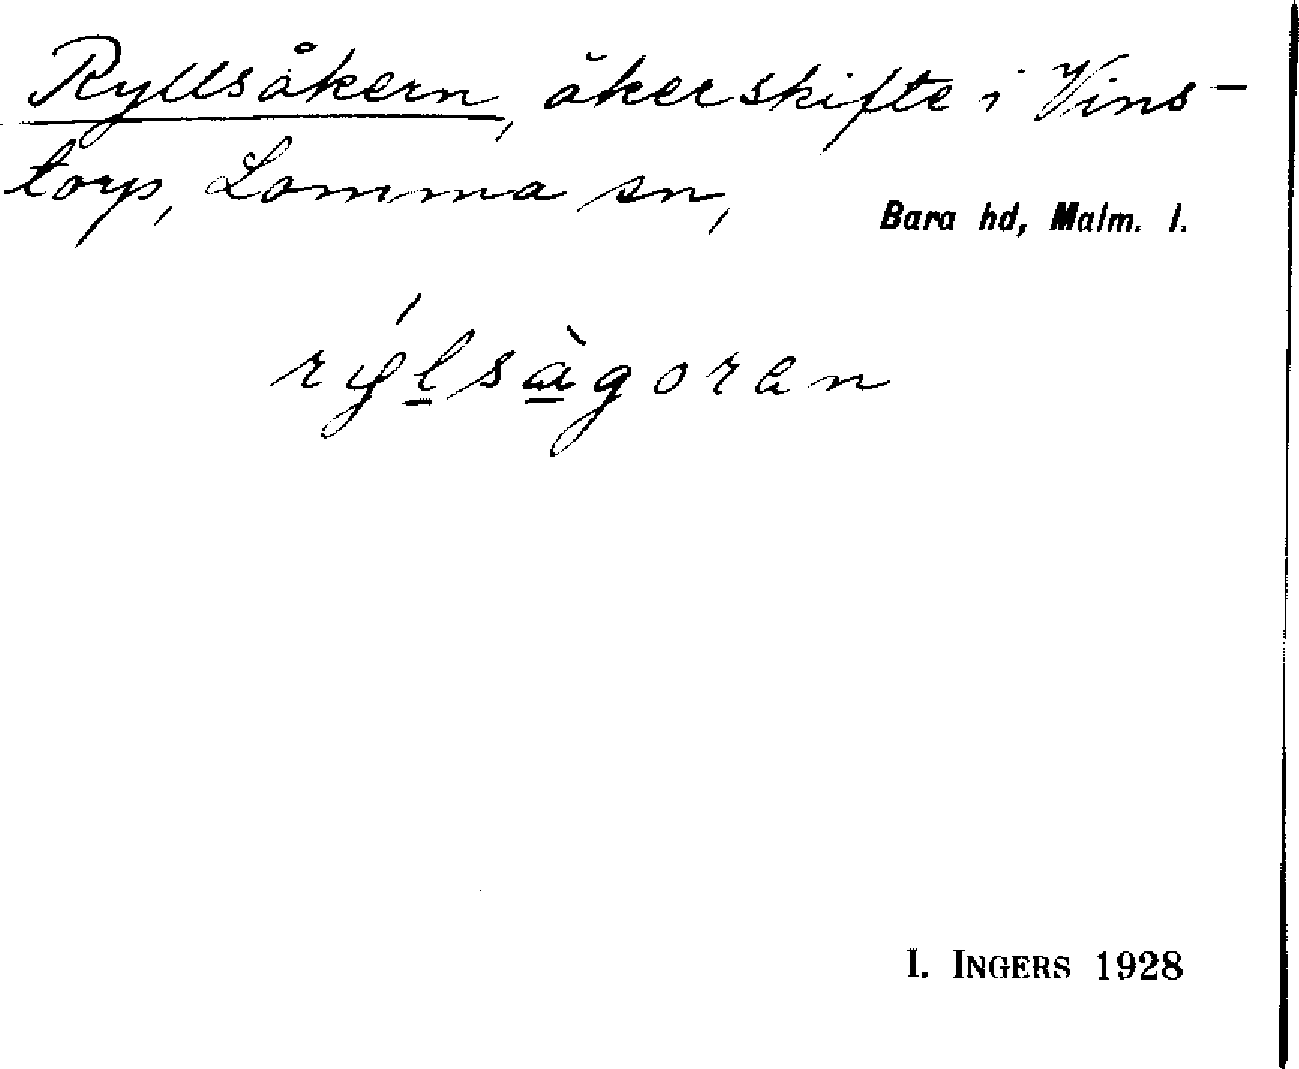 Ryllsåkern, åkerskifte i Vins-
torp, Lomma sn, Bara hd, Malm. l.
rýlsàgoran
I. INGERS 1928